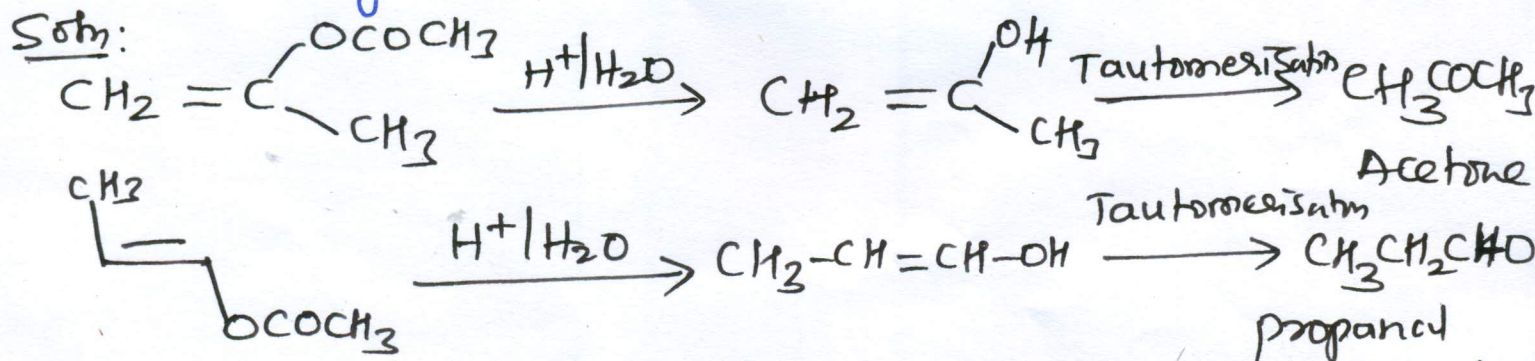 Soln:
CH2 = C OCOCH3 CH3 H+/H2O CH2 = C OH CH3 Tautomerisatn CH3COCH3
Acetone
CH3 OCOCH3 H+/H2O CH3-CH=CH-OH Tautomerisatn CH3CH2CHO
propanal